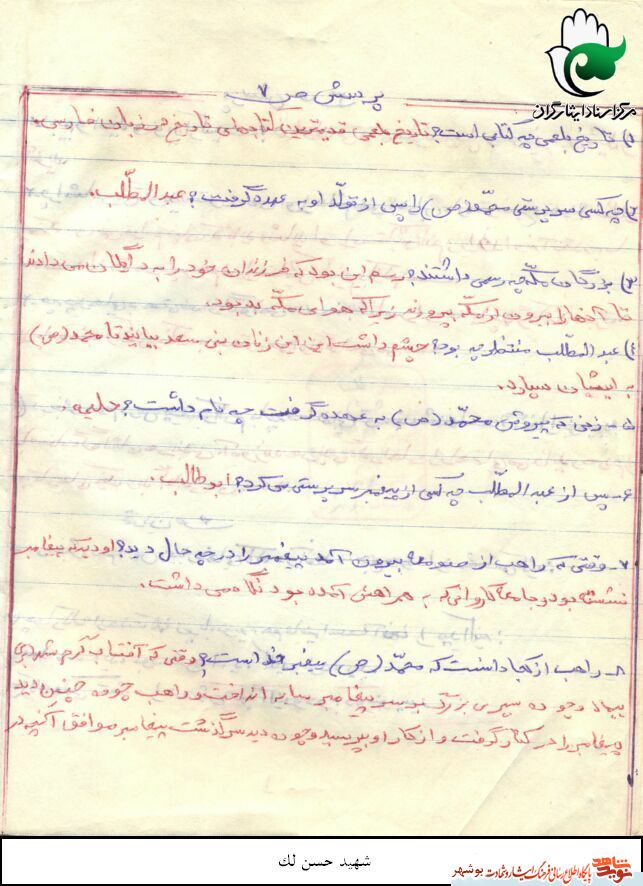 مرکز اسناد ایثارگران
پرسش ص ۷
۱) تاریخ بلعمی چه کتابی است؟ تاریخ بلعمی قدیمترین کتابهای تاریخ در زبان فارسی.
۲) چه کسی سرپرستی محمّد (ص) را پس از تولّد او به عهده گرفت؟ عبدالمطّلب.
۳) بزرگان مکّه چه رسمی داشتند؟ رسم این بود که فرزندان خود را به دایگان می دادند
تا آنها را بیرون از مکّه پرورند زیرا که هوای مکّه بد بود.
۴) عبدالمطلب منتظر چه بود؟ چشم داشت این این زنان بنی سعد بیایند تا محمد (ص)
به ایشان سپارد.
۵ - زنی که پرورش محمّد (ص) به عهده گرفت چه نام داشت؟ حلیمه.
۶ - پس از عبدالمطّلب چه کسی از پیغمبر سرپرستی می کرد؟ ابوطالب.
۷ - وقتی که راهب از صومعه بیرون آمد پیغمبر را در چه حال دید؟ او دید که پیغامبر
نشسته بود و جامهٔ کاروانی که به همراهش آمده بود نگاه می داشت.
۸ - راهب از کجا دانست که محمّد (ص) پیغمبر خدا است؟ وقتی که آفتاب گرم شد ابری
بیامد و چو ده سپری بزرگ بر سر پیغامبر سایه انداخت و راهب چو ده چنین دید
پیغامبر را در کنار گرفت و از کار او بپرسید و چو ده دید سرگذشت پیغامبر موافق آنچه در
شهید حسن لك
نوید شاهد
پایگاه اطلاع رسانی فرهنگ ایثار و شهادت بوشهر